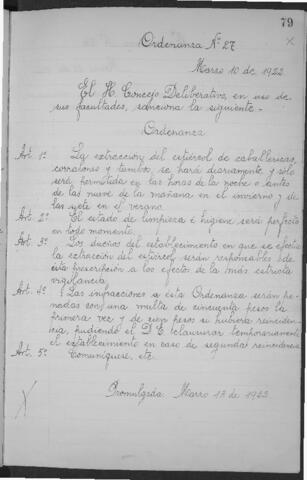 79
Ordenanza Nº 27
Marzo 10 de 1922
El H. Concejo Deliberativo, en uso de
sus facultades, sanciona la siguiente -
Ordenanza
Art. 1º La extracción del estiércol de caballerizas,
corralones y tambos, se hará diariamente y sólo
será permitida en las horas de la noche o antes
de las nueve de la mañana en el invierno y de
las siete en el verano.
Art. 2º El estado de limpieza é higiene será perfecto
en todo momento.
Art. 3º Los dueños del establecimiento en que se efectúa
la extracción del estiércol, serán responsables de
ésta prescripción a los efectos de la más estricta
vigilancia.
Art. 4º Las infracciones a ésta Ordenanza serán pe-
nadas con una multa de cincuenta pesos la
primera vez y de cien pesos si hubiera reinciden-
cia, pudiendo el D. E. clausurar temporariamente
el establecimiento en caso de segunda reincidencia
Art. 5º Comuníquese, etc.
Promulgada Marzo 13 de 1922